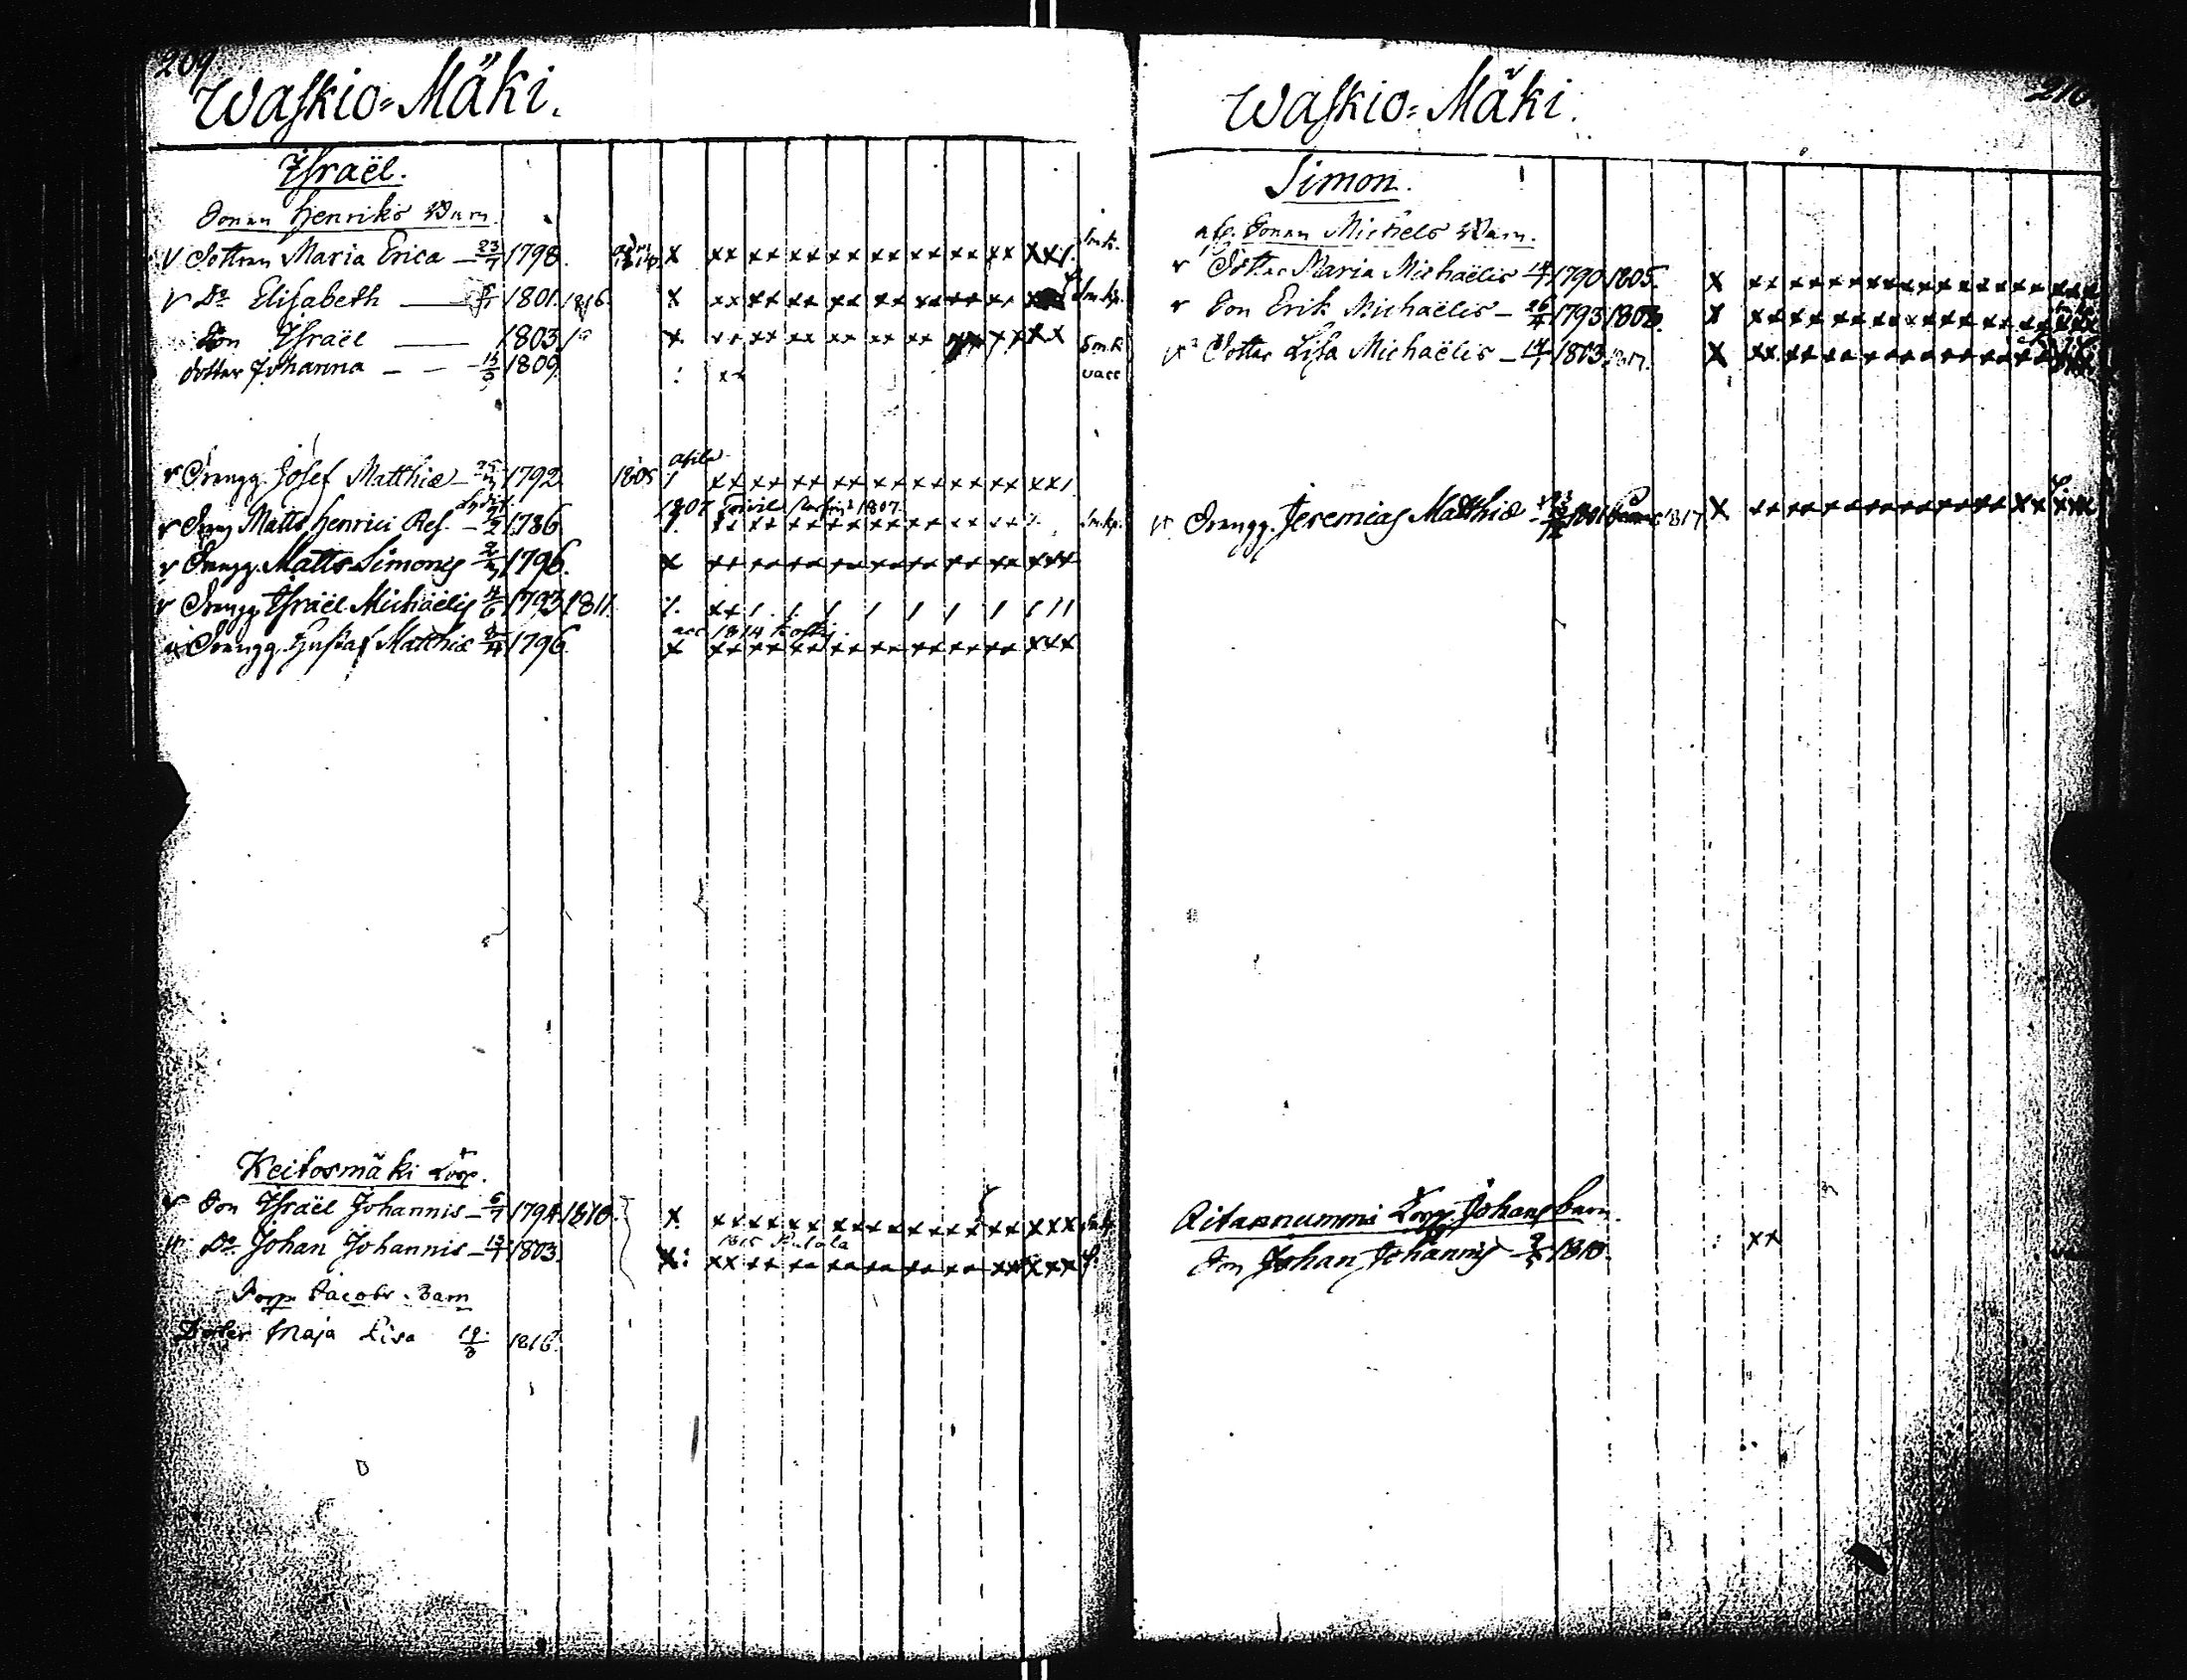 209
Waskio=Mäki.
Israël.
Sonen Henriks Barn.
v Dottren Maria Erica — 23/7 1798. x xx xx xx xx xx xx xx xx xx/. Sm.k.
v Do Elisabeth — 1801. 1816. x xx xx xx xx xx xx xx xx Sm.kp.
Son Israël — 1803. x xx xx xx xx xx xx xx xx xx Sm.k
dotter Johanna — 1809. : xx vacc
v Drengg. Josef Matthiæ 1792. 1805 / xx xx xx xx xx xx xx xx xx/
1807
v Dreng Matts Henrici Ref. 1786. /. xx xx xx xx xx xx xx xx /. Sm.kp.
v Drengg. Matts Simonis 1796. x xx xx xx xx xx xx xx xx xxx
v Drengg. Israël Michaëlis 4/6 1793. 1811. /. xx / / / / / / / / / /
1814 Koski
Drengg. Gustaf Matthiæ 1796. x xx xx xx xx xx xx xx xx xxx
Keitosmäki Torp.
v Son Israël Johannis — 6/7 1794. 1810. x xx xx xx xx xx xx xx xx xxx
1815
v Do Johan Johannis — 1803. x: xx xx xx xx xx xx xx xx xxx
Torp. Jacobs Barn
Dotter Maja Lisa 19/3 1816.
210
Waskio=Mäki.
Simon.
afl. Sonen Michels Barn.
v Dotter Maria Michaëlis 1790 1805. x xx xx xx xx xx xx xx xx xxx
v Son Erik Michaëlis — 26/4 1793 x xx xx xx xx xx xx xx xx xxx
Dotter Lisa Michaëlis — 1803. x xx xx xx xx xx xx xx xx
v Drengg. Jeremias Matthiæ 1801 1817 x xx xx xx xx xx xx xx xx xxx
Ritannummi Torp. Johans barn.
Son Johan Johannis 1810. : xx